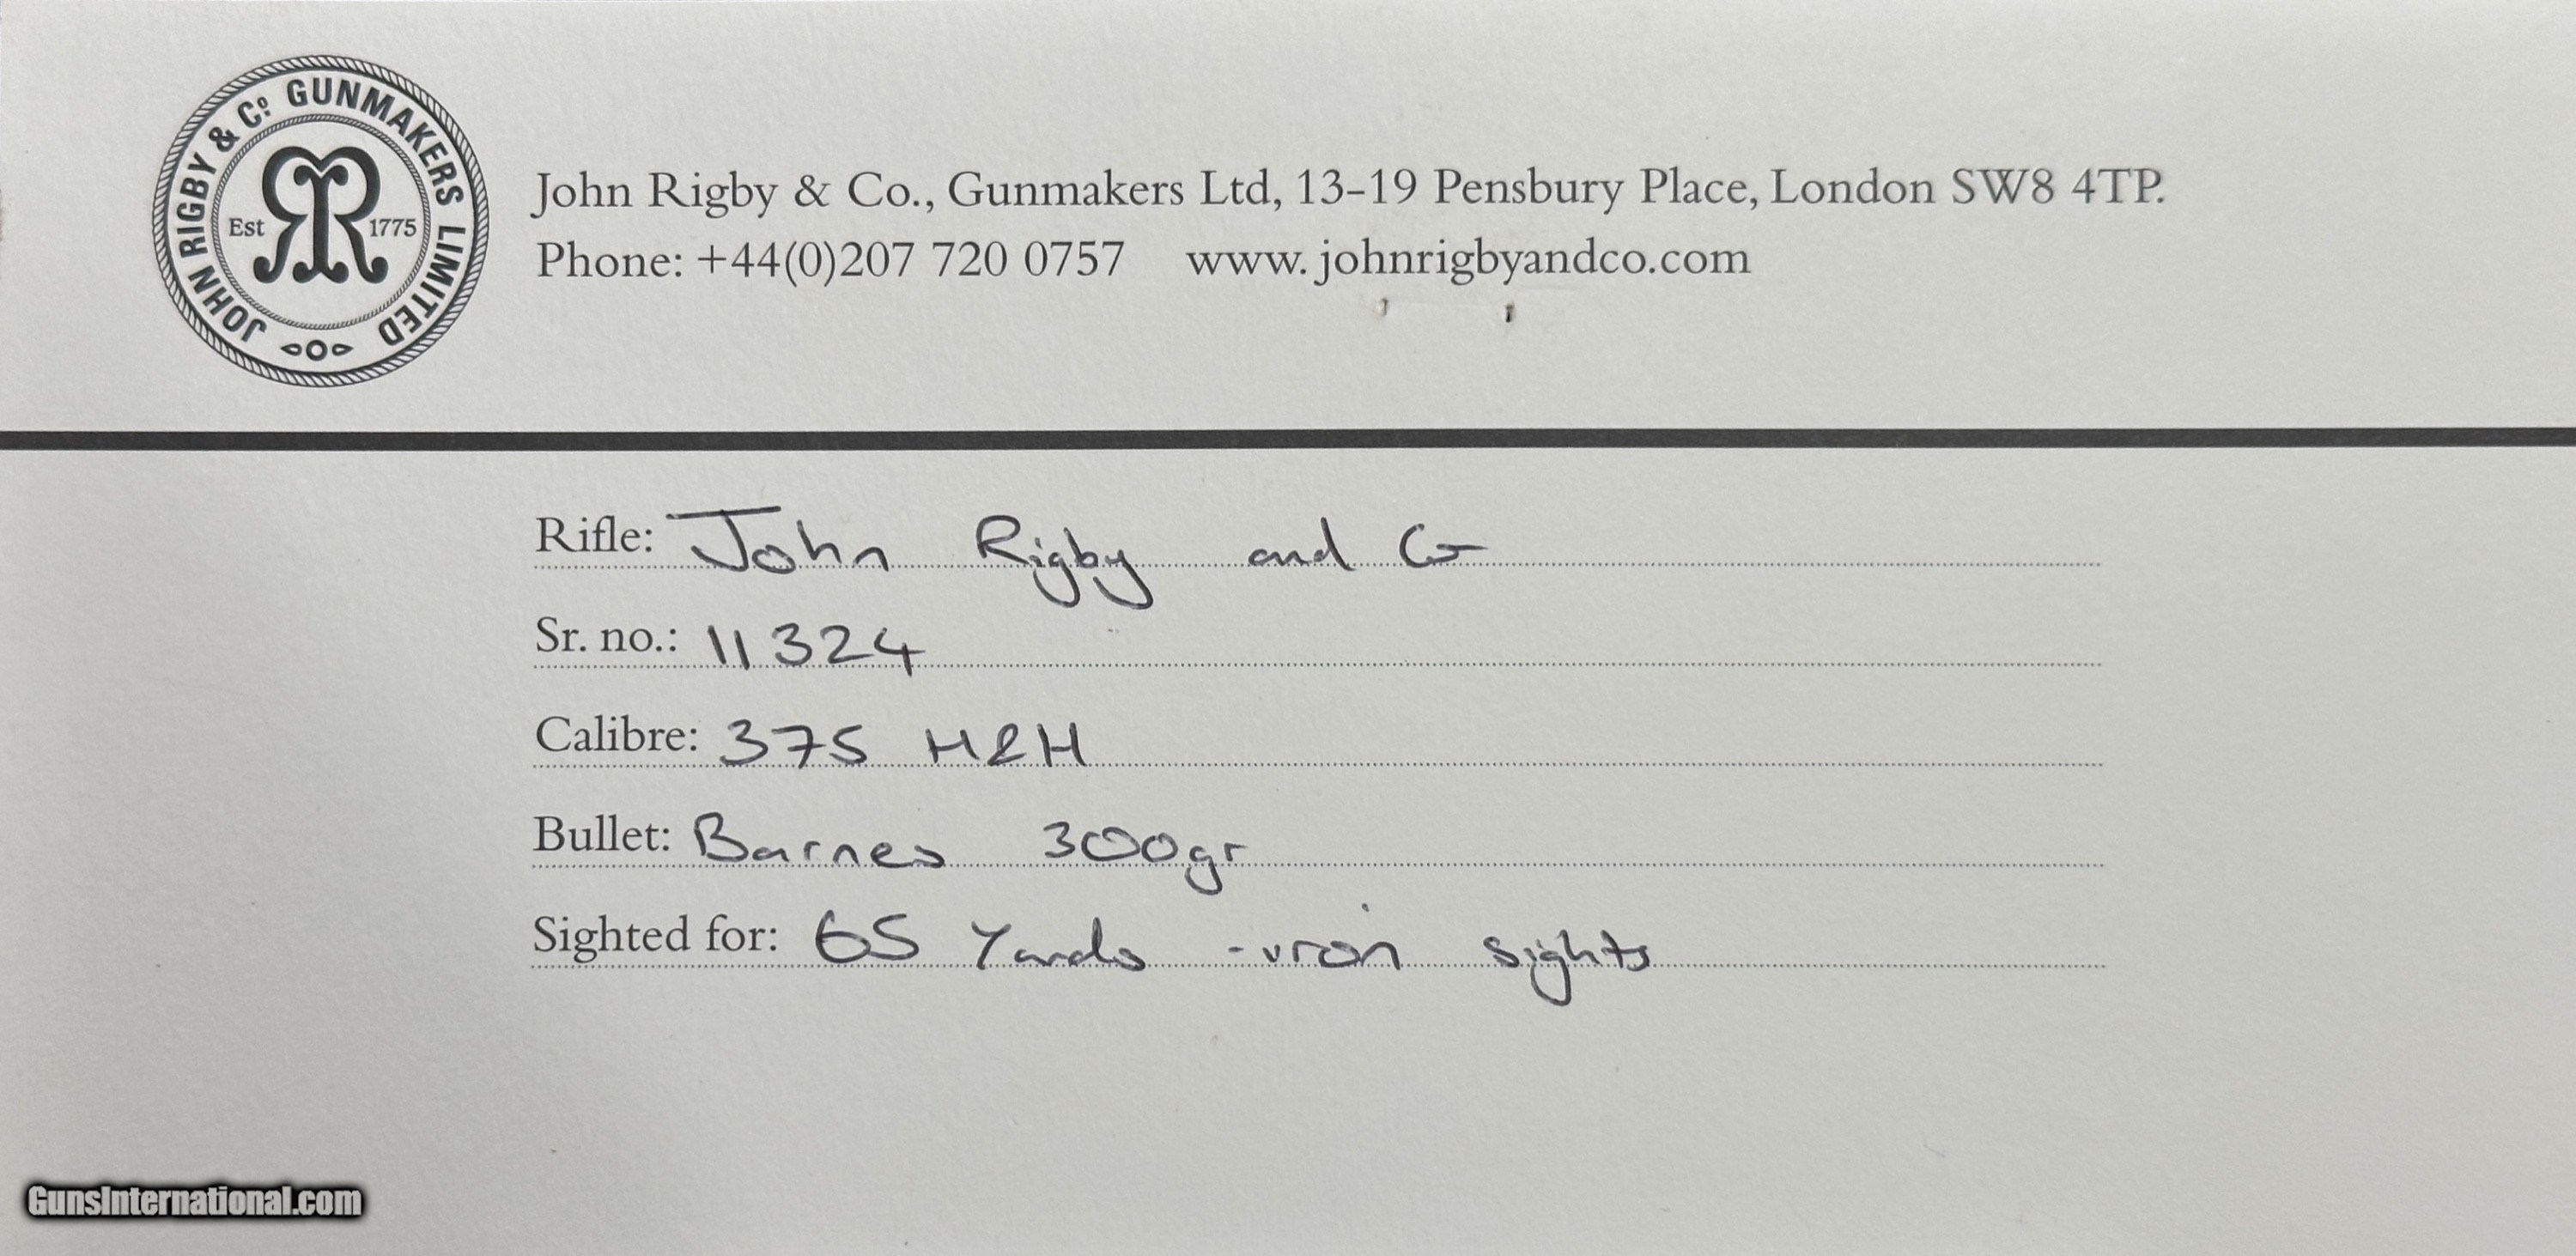 JOHN RIGBY & Co. GUNMAKERS LIMITED
Est RR 1775
John Rigby & Co., Gunmakers Ltd, 13-19 Pensbury Place, London SW8 4TP.
Phone: +44(0)207 720 0757 www.johnrigbyandco.com
Rifle: John Rigby and Co
Sr. no.: 11324
Calibre: 375 H&H
Bullet: Barnes 300gr
Sighted for: 65 Yards - iron sights
GunsInternational.com